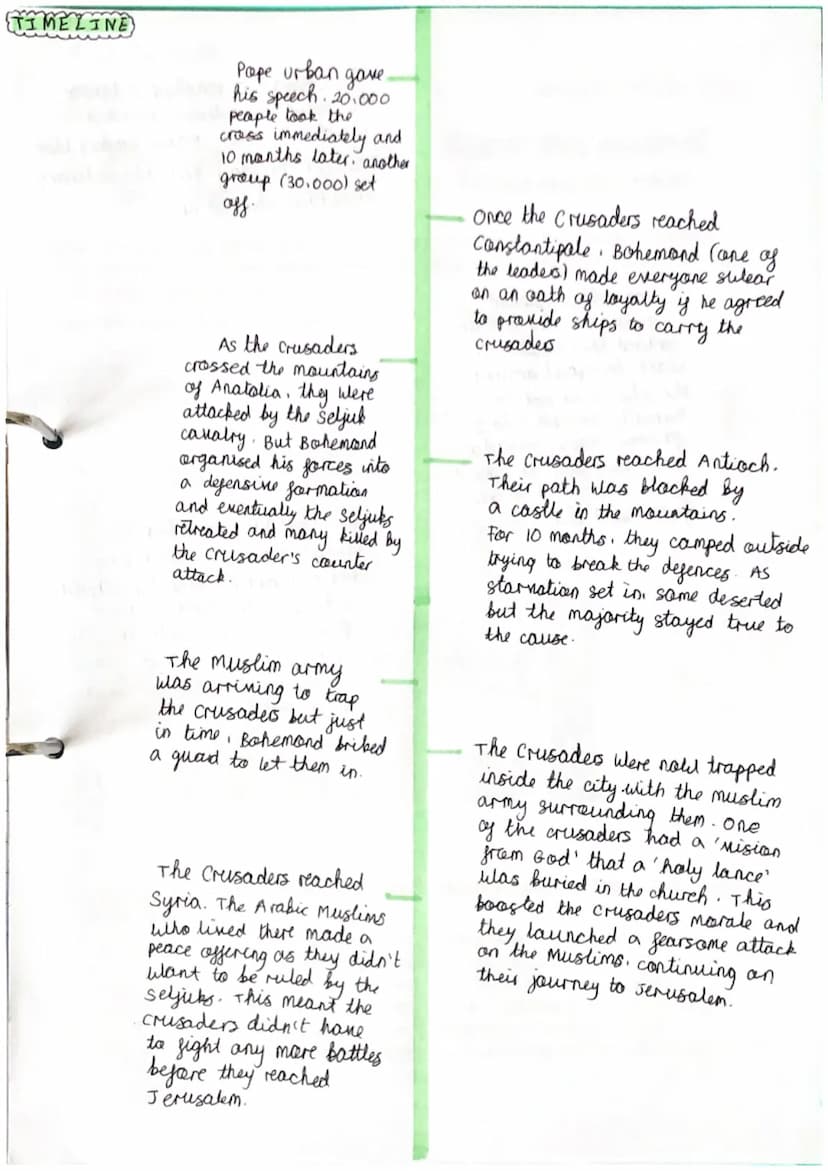 TIMELINE
Pope urban gave
his speech. 20,000
people took the
cross immediately and
10 months later, another
group (30,000) set
off.
Once the Crusaders reached
Constantipole, Bohemond (one of
the leaders) made everyone swear
on an oath of loyalty if he agreed
to provide ships to carry the
crusaders
As the Crusaders
crossed the mountains
of Anatolia, they were
attacked by the Seljuk
cavalry. But Bohemond
organised his forces into
a defensive formation
and eventually the Seljuks
retreated and many killed by
the Crusader's counter
attack.
The Crusaders reached Antioch.
Their path was blocked by
a castle in the mountains.
For 10 months, they camped outside
trying to break the defences. As
starvation set in, some deserted
but the majority stayed true to
the cause.
The Muslim army
was arriving to trap
the Crusaders but just
in time, Bohemond bribed
a guard to let them in.
The Crusades were now trapped
inside the city with the Muslim
army surrounding them. One
of the crusaders had a 'Vision
from God' that a 'holy lance'
was buried in the church. This
boosted the Crusaders morale and
they launched a fearsome attack
on the Muslims, continuing on
their journey to Jerusalem.
The Crusaders reached
Syria. The Arabic Muslims
who lived there made a
peace offering as they didn't
want to be ruled by the
Seljuks. This meant the
Crusaders didn't have
to fight any more battles
before they reached
Jerusalem.